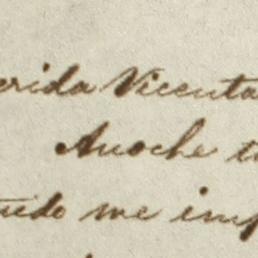 erida Vicenta
Anoche t
me imp